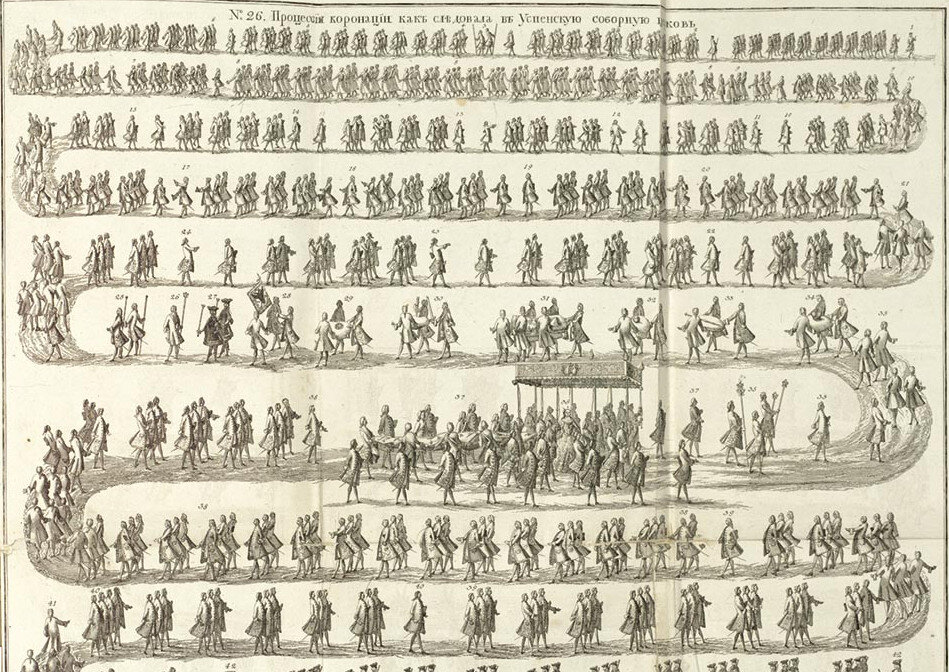 № 26. Процессія коронаціи какъ слѣдовала въ Успенскую соборную цковь
6 1
10
15 14 13 12 11
17 18 19 20 21
24 23 22
25 26 27 28 29 30 31 32 33 34 35
36 37 37 35 35
38 38 39
41 40
42 42